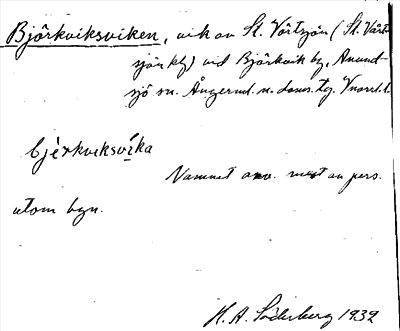 Björkviksviken, vik av St. Vårtsjön (St. Vårt-
sjön kg) vid Björkvik by, Anund-
sjö sn. Ångerml. n. doms. tg. Vnorrl. l.
bjèrkviksvíka
Namnet anv. mest av pers.
utom byn.
H. A. Söderberg 1932